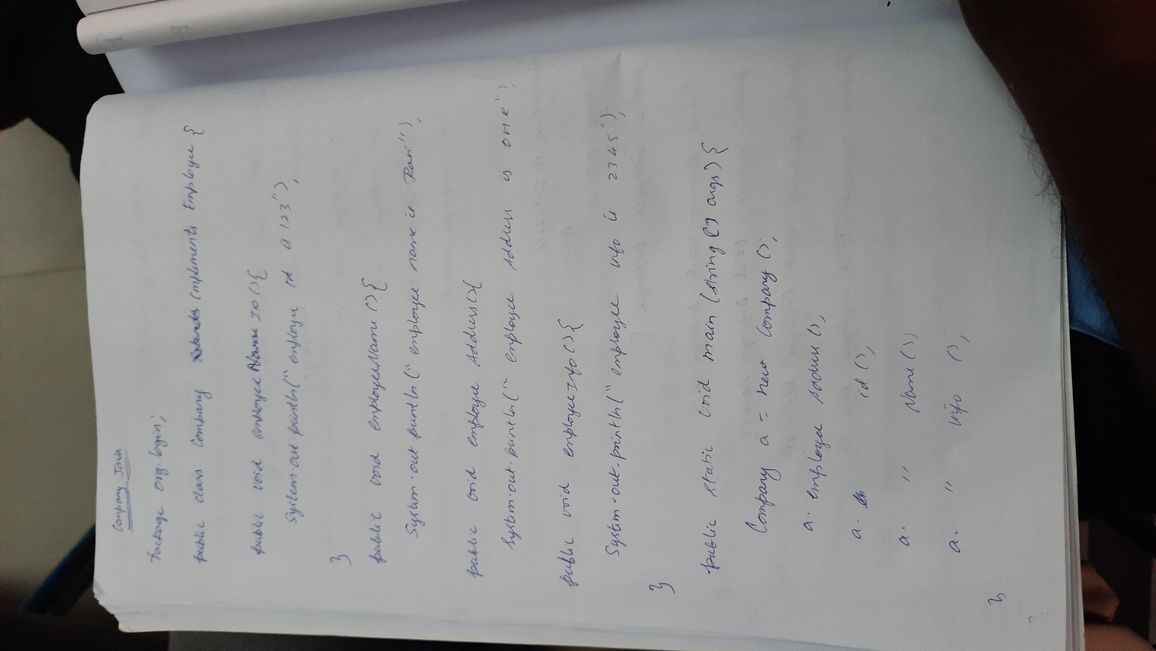 Company Java
Package org.login;
public class Company implements Employee {
public void employee Name ID () {
System.out.println(" employee id a 123");
}
public void employeeName () {
System.out.println(" employee name is Ravi");
public void employee Address() {
System.out.println(" employee Address is OMR");
public void employeeInfo () {
System.out.println(" employee info is 2345");
}
public static void main (string [] args) {
Company a = new Company ();
a. employee Address ();
a. id ();
a. " Name ();
a. " info ();
}